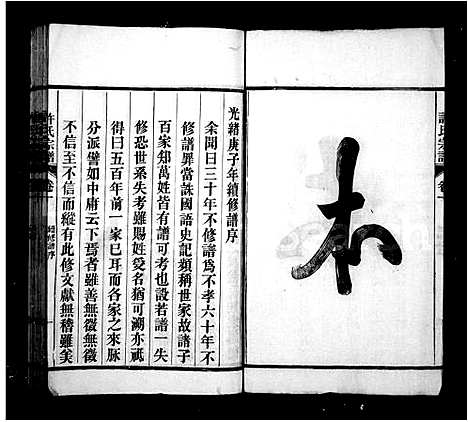 許氏宗譜
卷一
本
光緒庚子年續修譜序
余聞曰三十年不修譜爲不孝六十年不
修譜罪當誅國語史記類稱世家故諸子
百家知萬姓皆有譜可考也設若譜一失
修恐世系失考雖賜姓受名猶可溯亦祇
得曰五百年前一家已耳而各家之來脉
分派譬如中庸云下焉者雖善無徵無徵
不信至不信而縱有此修文獻無稽雖美
許氏宗譜
卷一